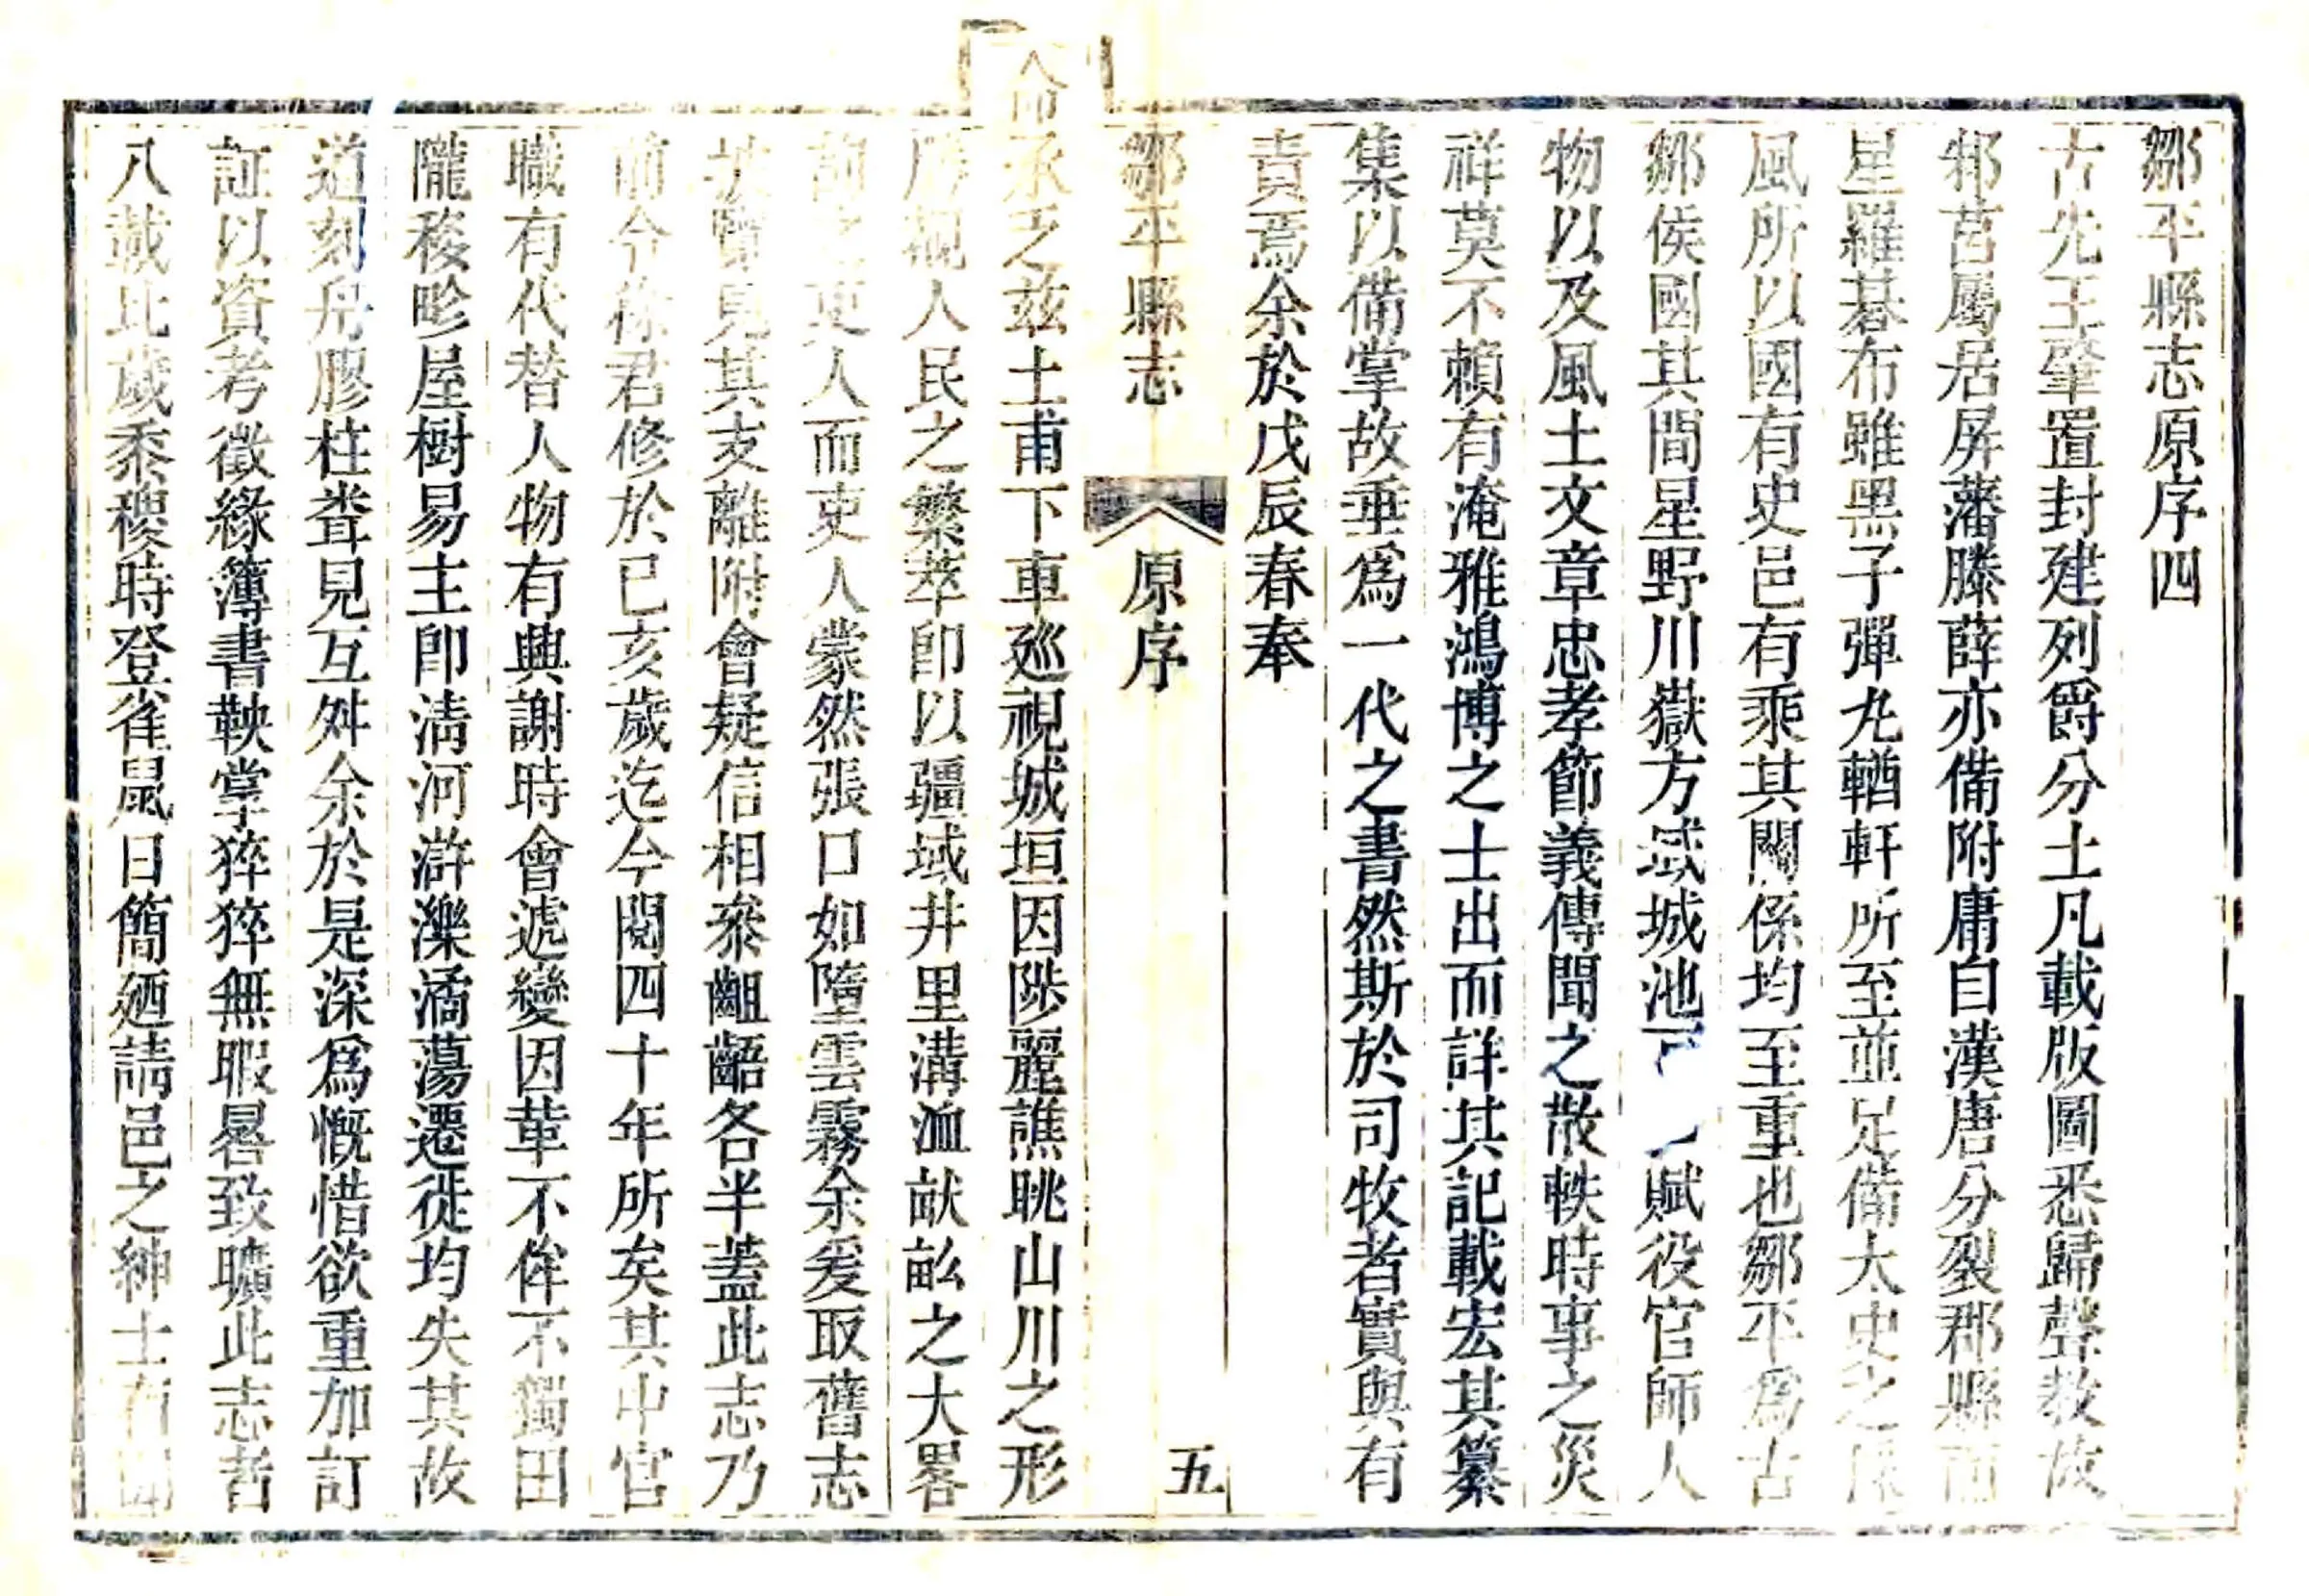 鄒平縣志原序四
古先王肇置封建列爵分土凡載版圖悉歸聲教故
邾莒屬居屏藩滕薛亦備附庸自漢唐分裂郡縣而
星羅碁布雖黑子彈丸輶軒所至並足備太史之採
風所以國有史邑有乘其關係均至重也鄒平爲古
鄒侯國其間星野川嶽方域城池賦役官師人
物以及風土文章忠孝節義傳聞之散軼時事之災
祥莫不賴有淹雅鴻博之士出而詳其記載宏其纂
集以備掌故垂爲一代之書然斯於司牧者實與有
責焉余於戊辰春奉
鄒平縣志 原序 五
命承乏兹土甫下車廵視城垣因陟麗譙眺山川之形
勝觀人民之繁萃卽以疆域井里溝洫畎畝之大畧
詢之吏人而吏人蒙然張口如墮雲霧余爰取舊志
披覽見其支離附會疑信相叅齟齬各半蓋此志乃
前令徐君修於已亥歲迄今閱四十年所矣其中官
職有代替人物有興謝時會遞變因革不侔不獨田
隴稜畛屋樹易主卽淸河滸濼潏蕩遷徙均失其故
道刻舟膠柱耸見互舛余於是深爲慨惜欲重加訂
証以資考徵緣簿書鞅掌猝猝無暇晷致曠此志者
八載比歲黍稷時登雀鼠日簡廼請邑之紳士有